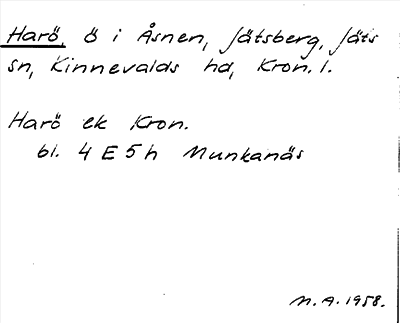 Harö, ö i Åsnen, Jätsberg, Jäts
sn, Kinnevalds hd, Kron. l.
Harö ek Kron.
bl. 4 E 5 h Munkanäs
M.A. 1958.